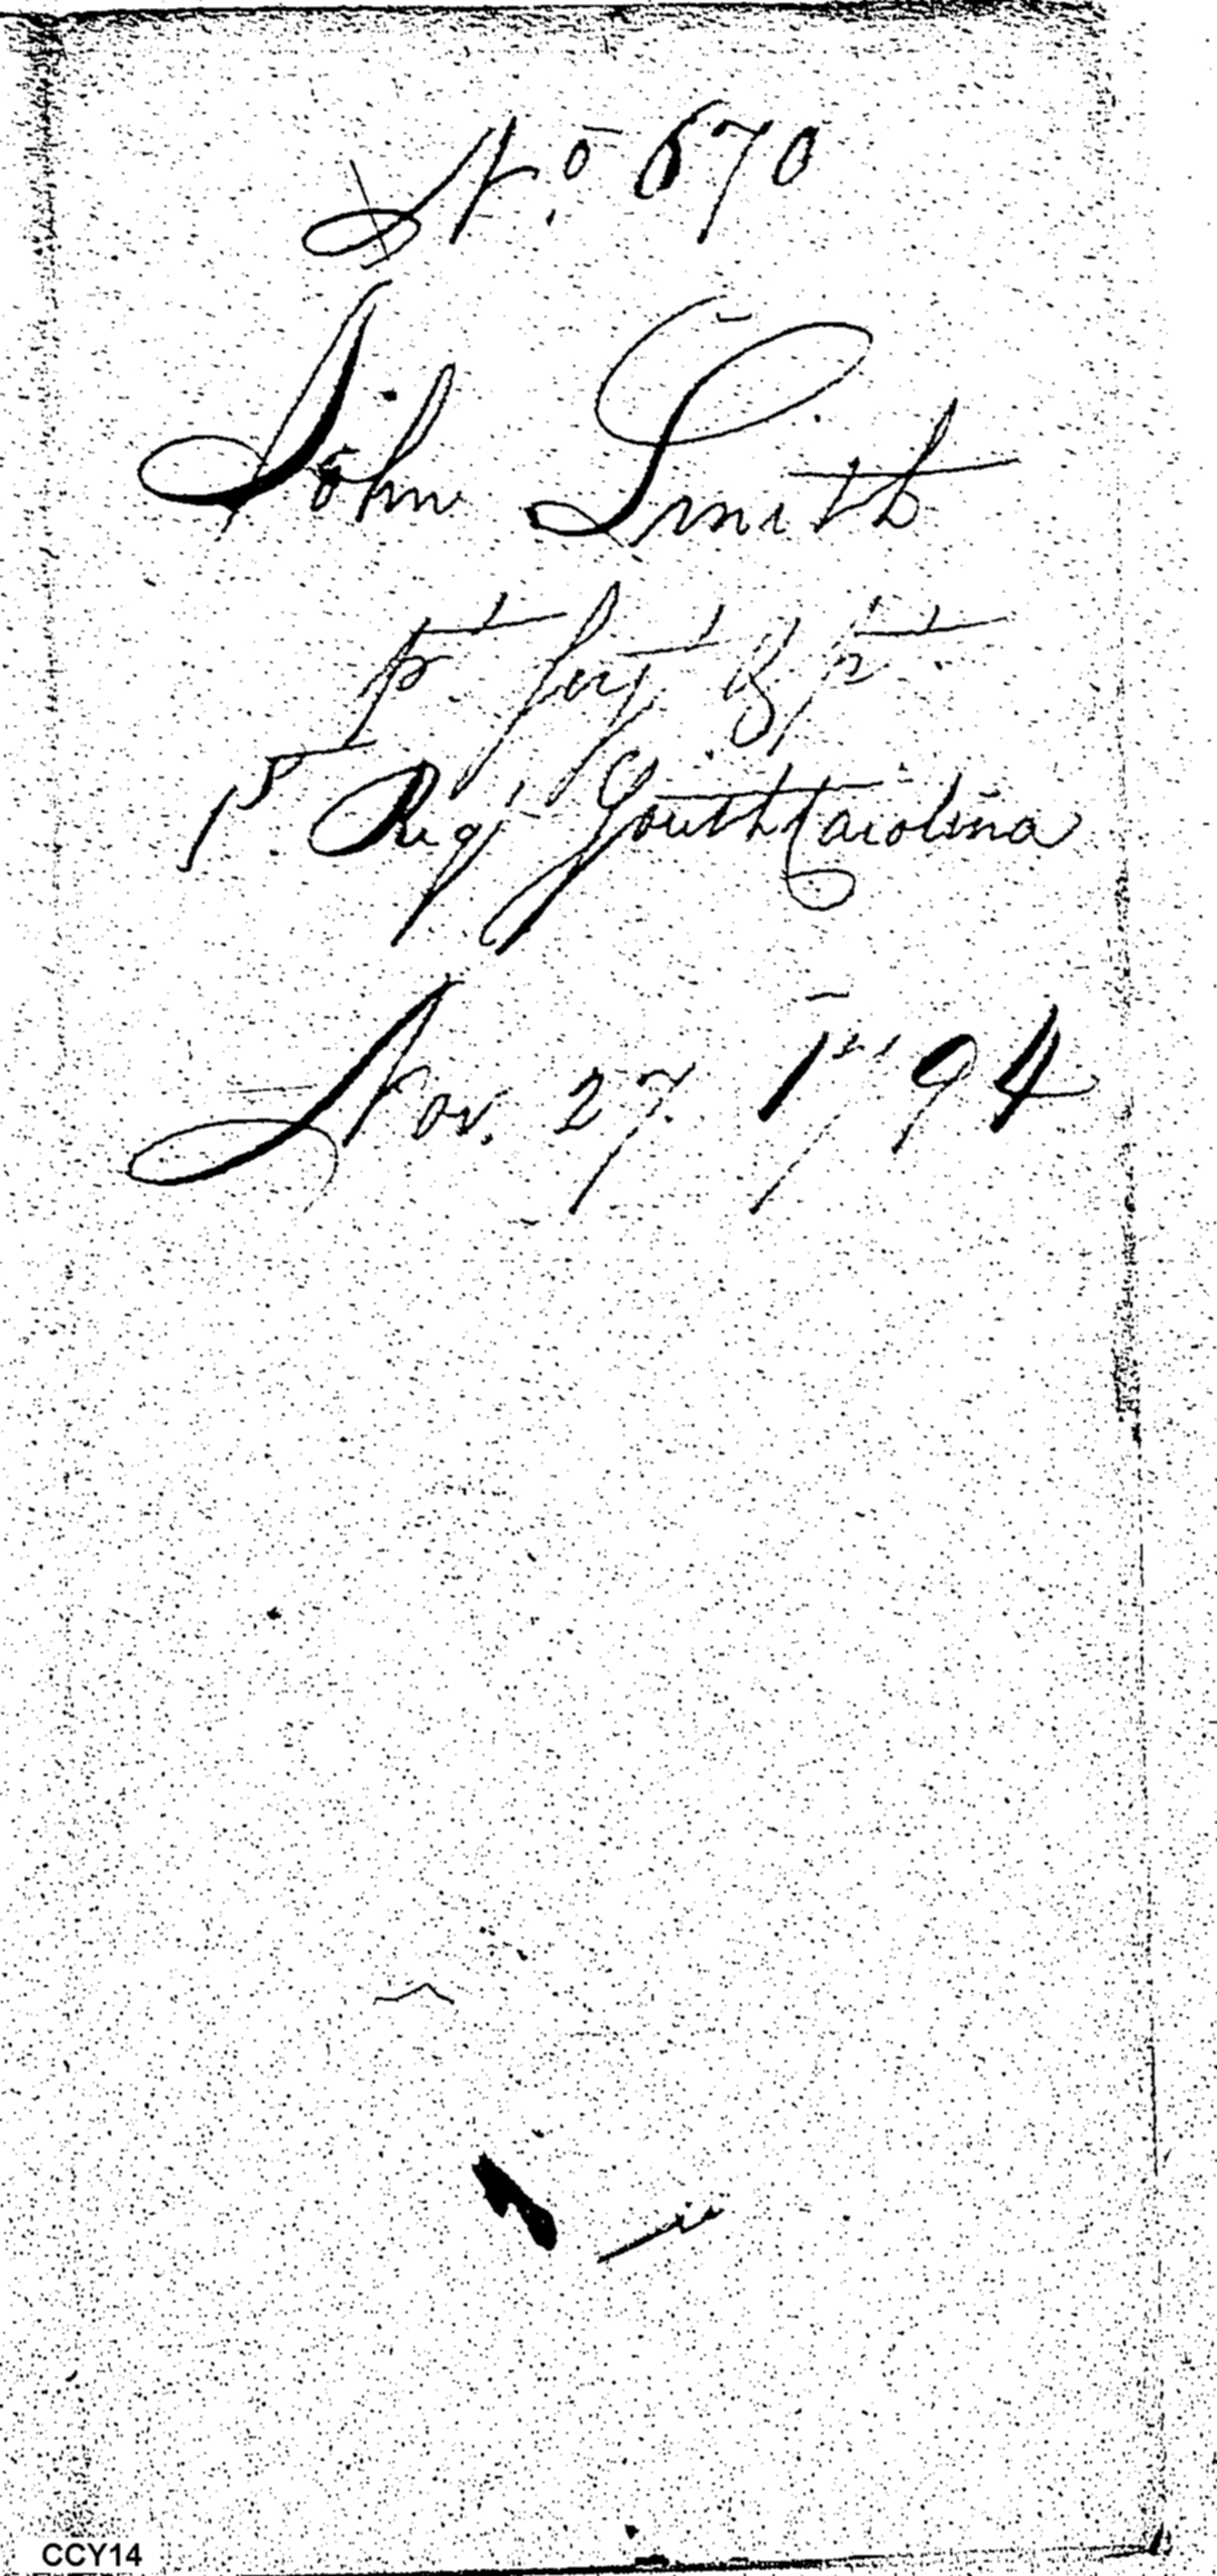 No. 670
John Smith
1st Regt South Carolina
Nov. 27. 1794
CCY14